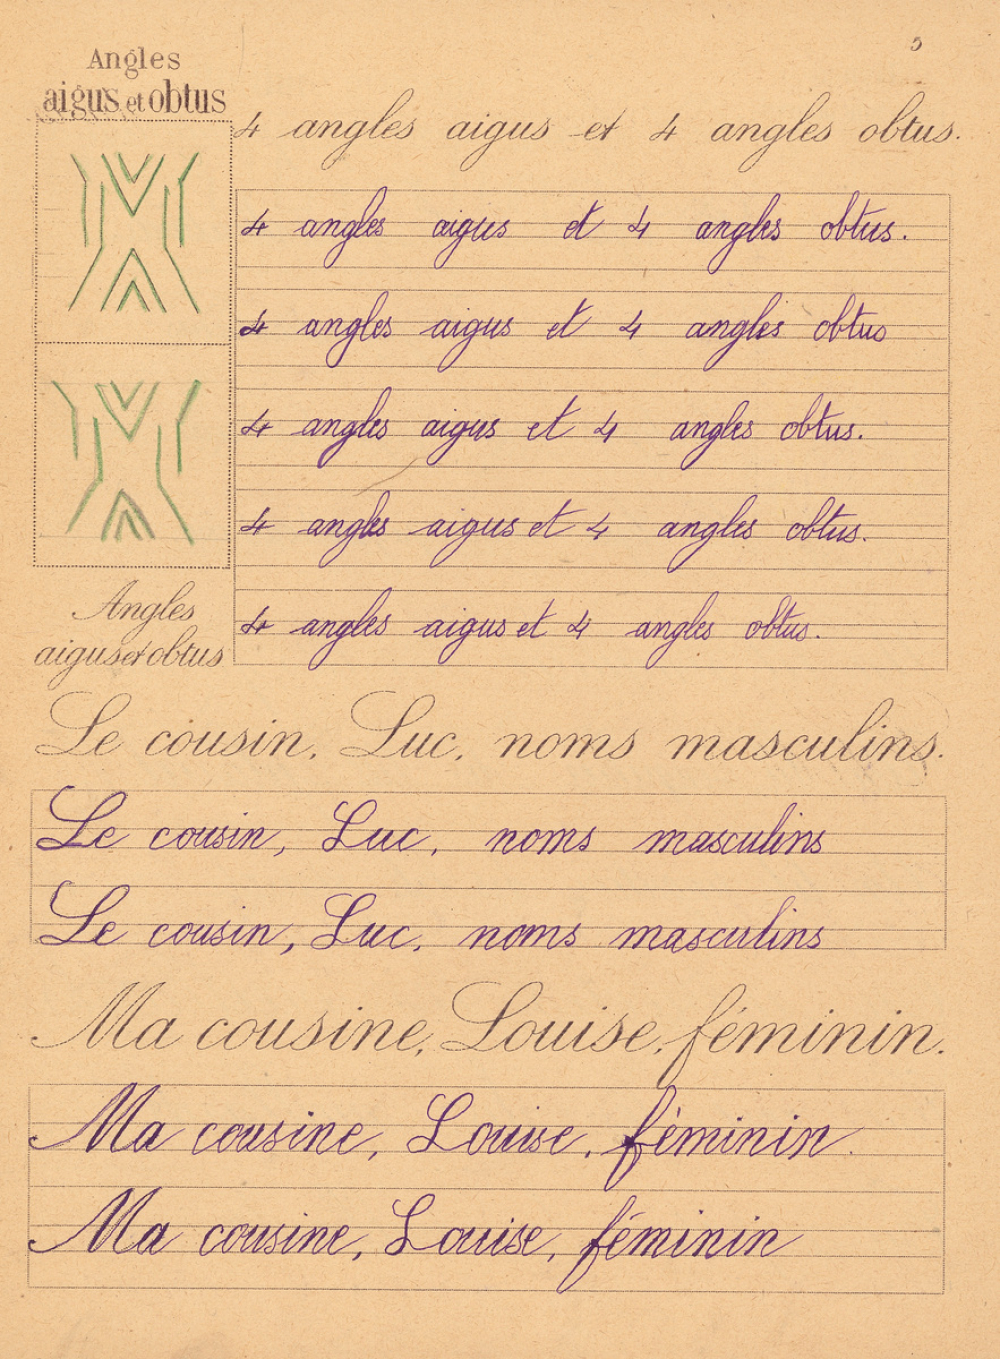 5
Angles
aigus et obtus
4 angles aigus et 4 angles obtus.
4 angles aigus et 4 angles obtus.
4 angles aigus et 4 angles obtus
4 angles aigus et 4 angles obtus.
4 angles aigus et 4 angles obtus.
4 angles aigus et 4 angles obtus.
Angles
aigus et obtus
Le cousin, Luc, noms masculins.
Le cousin, Luc, noms masculins
Le cousin, Luc, noms masculins
Ma cousine, Louise, féminin.
Ma cousine, Louise, féminin.
Ma cousine, Louise, féminin